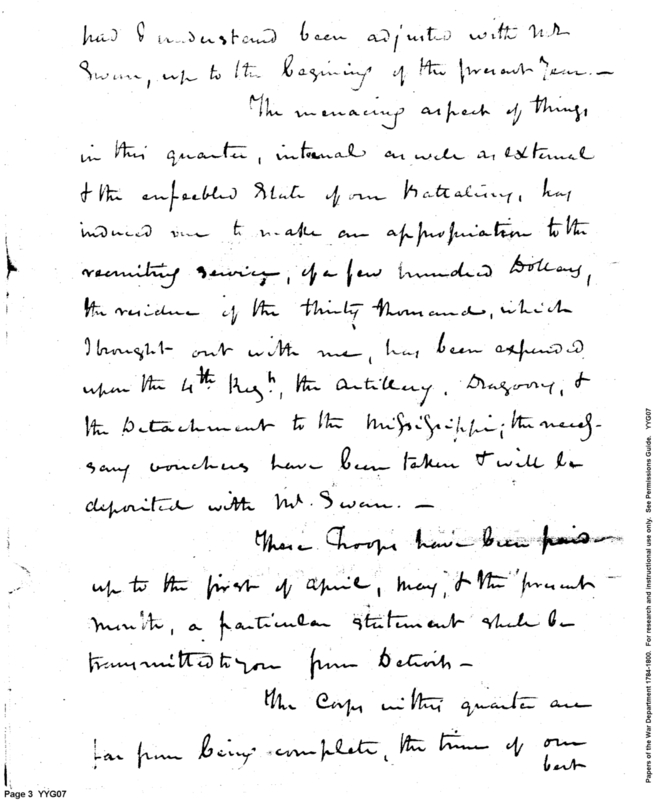 had I understand been adjusted with Mr
Swan, up to the begining of the present Year. —
The menacing aspect of things
in this quarter, internal as well as external
& the enfeebled State of our Battalions, has
induced me to make an appropriation to the
recruiting service, of a few hundred Dollars,
the residue of the thirty thousand, which
I brought out with me, has been expended
upon the 4th Regt, the Artillery, Dragoons, &
the Detachment to the Mississippi; the neces-
sary vouchers have been taken & will be
deposited with Mr. Swan. —
These Troops have been paid
up to the first of April, May, & the present
month, a particular statement shall be
transmitted to you from Detroit —
The Corps in this quarter are
far from being complete, the time of our
best
Page 3 YYG07
Papers of the War Department 1784-1800. For research and instructional use only. See Permissions Guide. YYG07